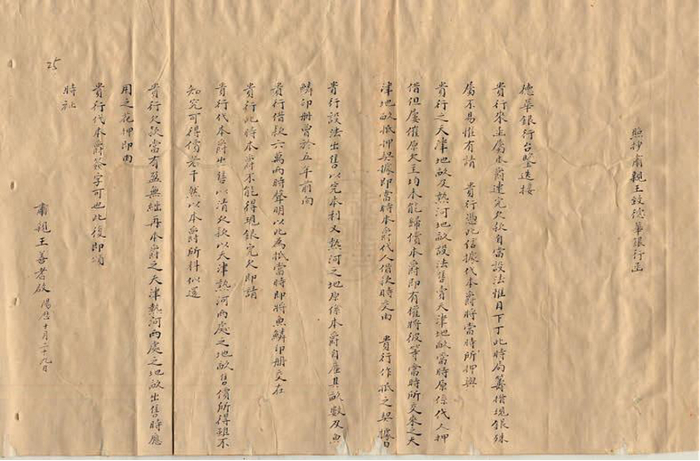 照抄肅親王致德華銀行函
德華銀行台鑒迭接
貴行來函屬本爵速完欠款自當設法惟目下丁此時局籌借現銀殊
屬不易惟有請 貴行憑此信據代本爵將當時所押與
貴行之天津地畝及熱河地畝設法售賣天津地畝當時原係代人押
借但屢催原欠主均未能歸償本爵即有權將彼等當時所交來之天
津地畝抵押契據即當時本爵代人借款時交由 貴行作抵之契據由
貴行設法出售以完本利又熱河之地原係本爵自產其畝數及魚
鱗印冊曾於五年前向
貴行借款六萬兩時聲明以此為抵當時即將魚鱗印冊交在
貴行此時本爵不能得現銀完欠即請
貴行代本爵出售以清欠款以天津熱河兩處之地畝售價所得雖不
知究可得價若干然以本爵所得似還
貴行欠款當有盈無絀再本爵之天津熱河兩處之地畝出售時應
用之花押即由
貴行代本爵簽字可也此復即頌
時祉
肅親王善耆啟 陽曆十月二十九日
25